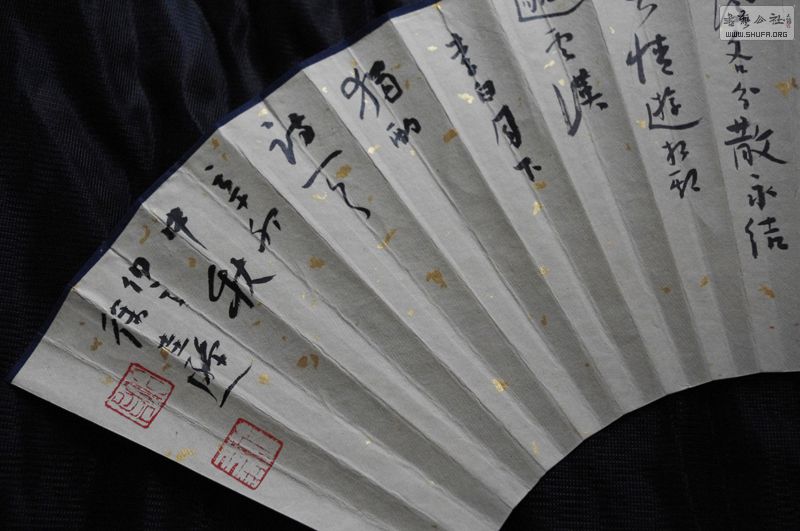 各分散永結
情遊相期
邈雲漢
李白月下
獨酌
詩一首
辛卯
中秋
書藝公社
WWW.SHUFA.ORG